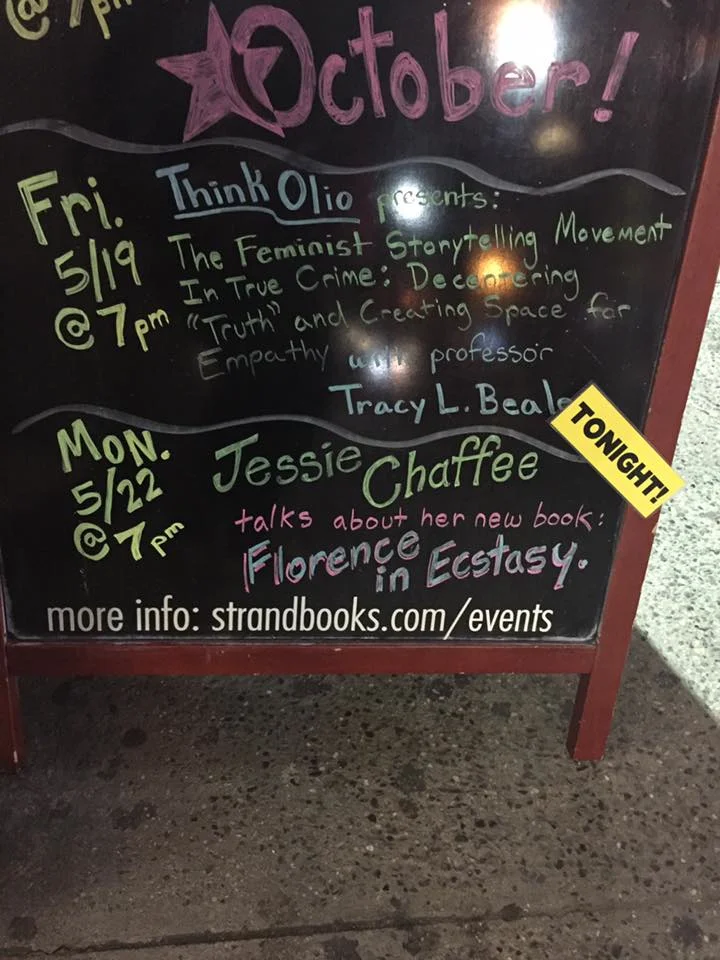 @ 7pm
October!
Fri.
5/19
@ 7pm
Think Olio presents:
The Feminist Storytelling Movement
In True Crime: Decentering
"Truth" and Creating Space for
Empathy with professor
Tracy L. Beale
TONIGHT!
Mon.
5/22
@ 7pm
Jessie Chaffee
talks about her new book:
Florence
in Ecstasy.
more info: strandbooks.com/events